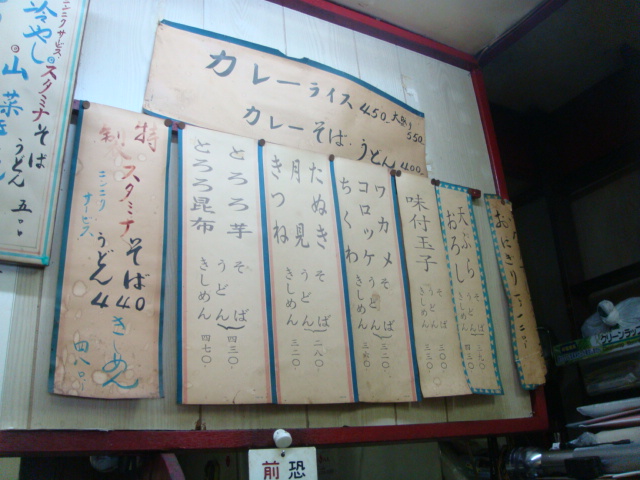 カレーライス 450- 大盛り 550-
カレーそば・うどん 400-
ニンニクサービス
冷やしスタミナそば
うどん 五〇〇
山菜
特製 スタミナそば
うどん 440
ニンニクサービス
きしめん 四八〇
とろろ芋 そば うどん 四三〇
とろろ昆布 きしめん 四七〇
たぬき そば
月見 うどん 二八〇
きつね きしめん 三二〇
ワカメ そば
コロッケ うどん 三二〇
ちくわ きしめん 三六〇
味付玉子 そば うどん
きしめん
天ぷら そば うどん
おろし きしめん
おにぎり
前 恐
クリーンラップ